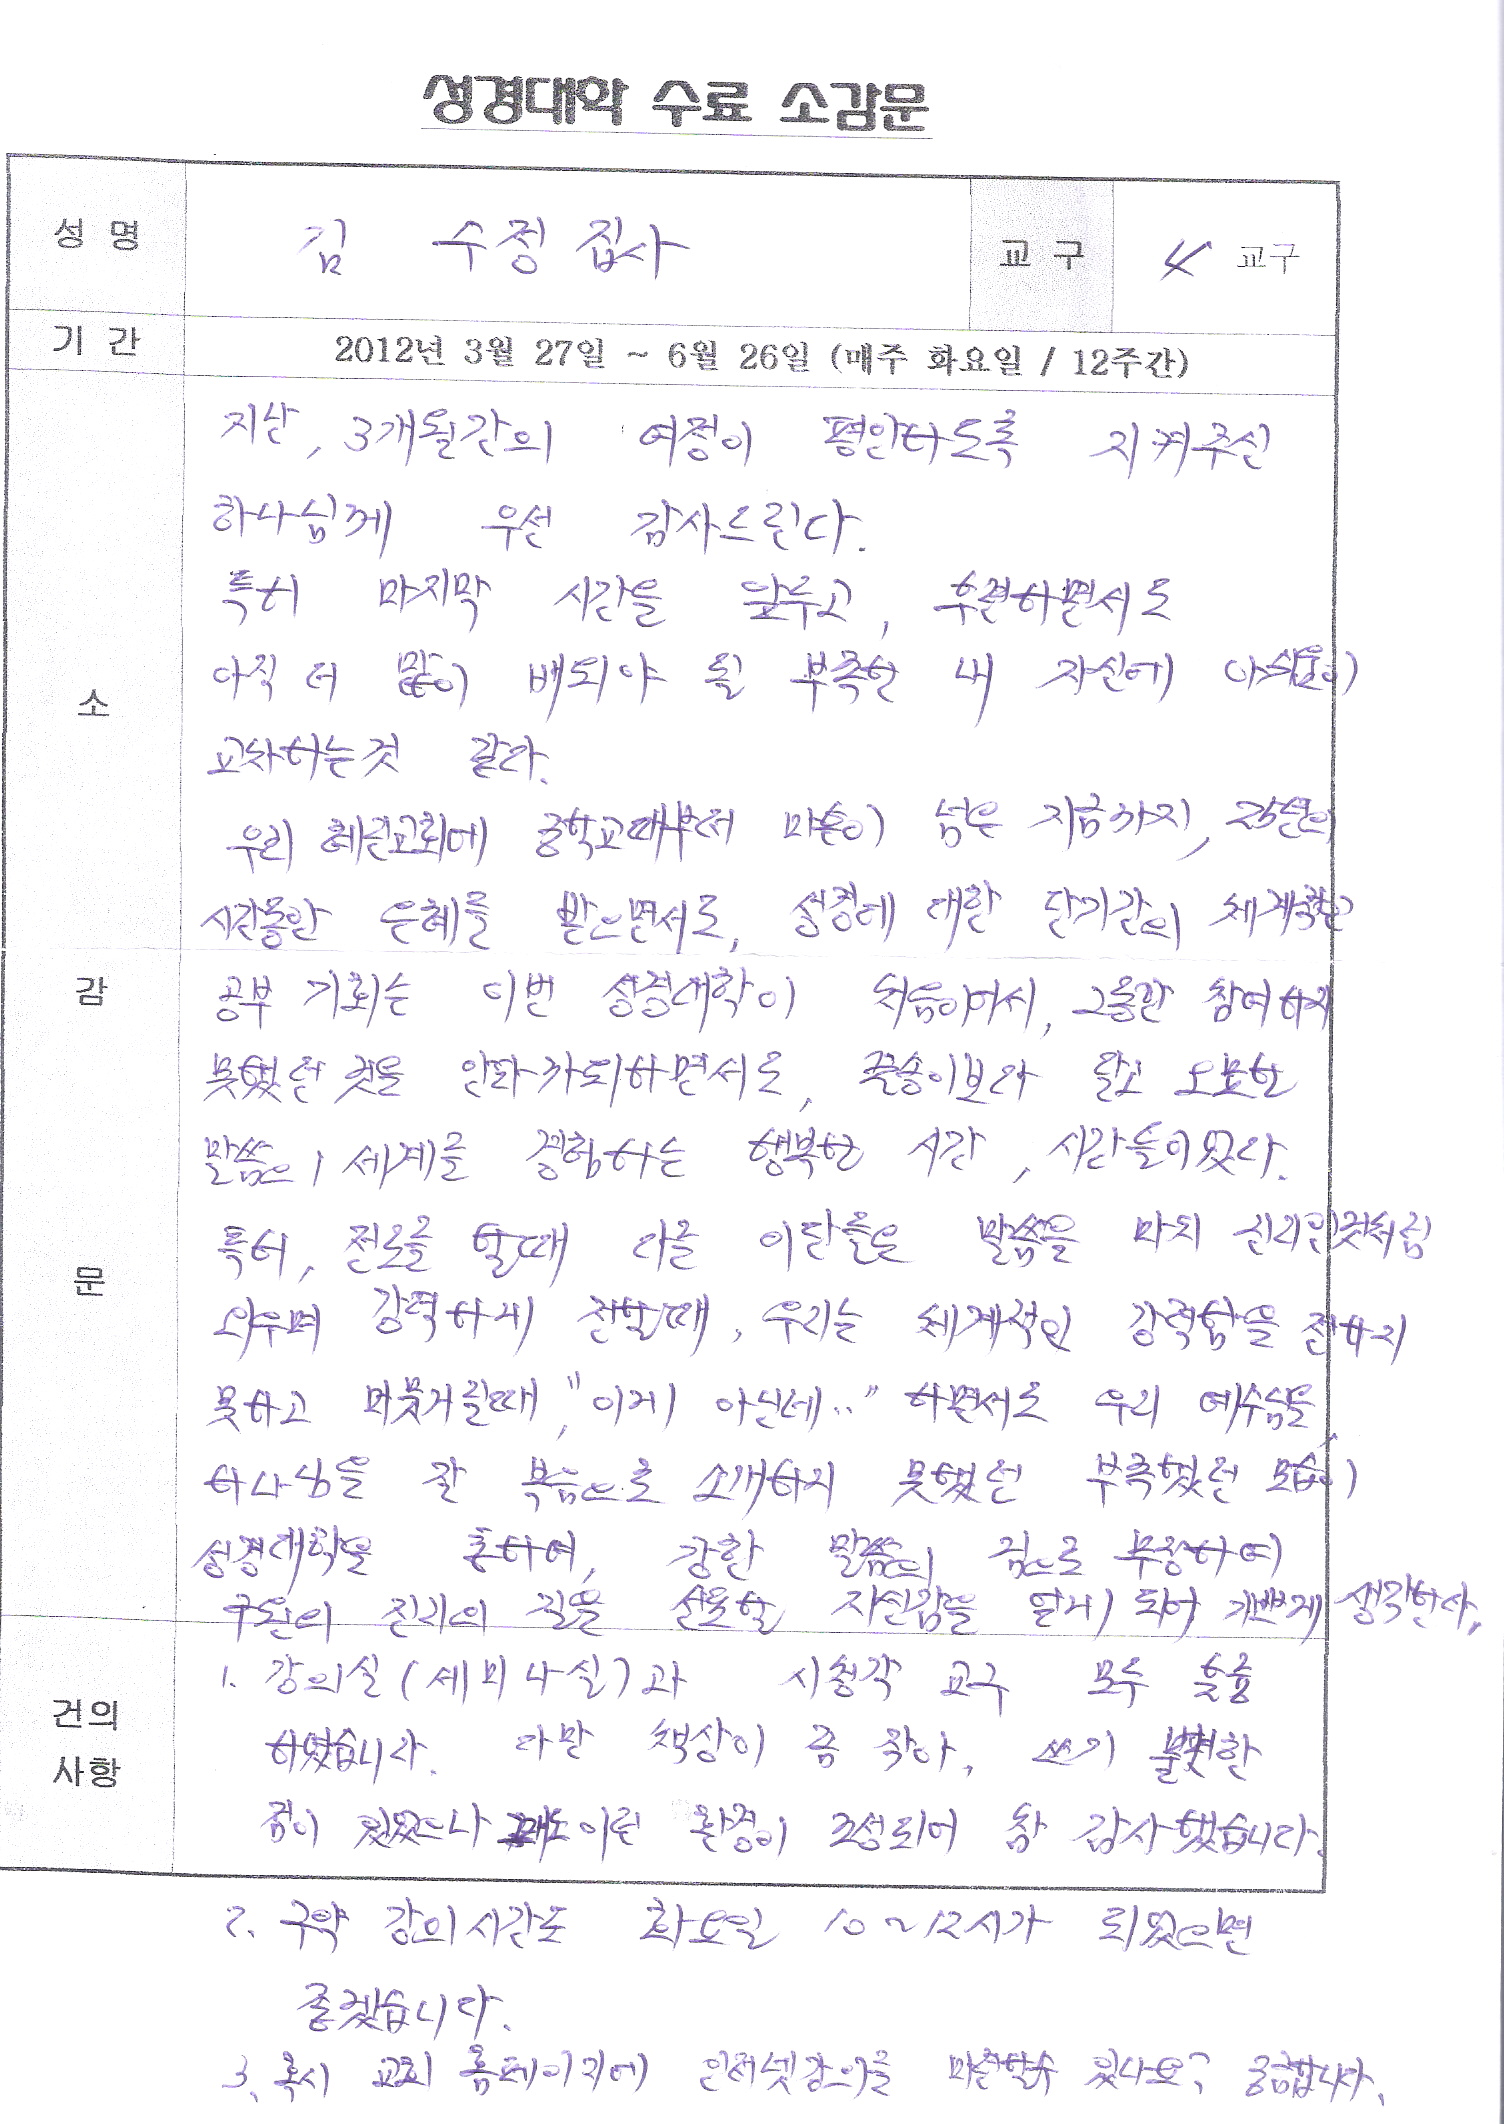 성경대학 수료 소감문
성 명 김 수정 집사 교 구 4 교구
기 간 2012년 3월 27일 ~ 6월 26일 (매주 화요일 / 12주간)
소 감 문
지난, 3개월간의 여정이 평안하도록 지켜주신
하나님께 우선 감사드린다.
특히 마지막 시간을 앞두고, 후련하면서도
아직 더 많이 배워야 될 부족한 내 자신에 아쉬움이
교차하는것 같다.
우리 혜린교회에 중학교때부터 마흔이 넘은 지금까지, 25년의
시간동안 은혜를 받으면서도, 성경에 대한 단기간의 체계적인
공부 기회는 이번 성경대학이 처음이어서, 그동안 참여하지
못했던 것을 안타까워하면서도, 꿀송이보다 달고 오묘한
말씀의 세계를 경험하는 행복한 시간, 시간들이었다.
특히, 전도를 할때 다른 이단들은 말씀을 마치 진리인것처럼
외우며 강력하게 전할때, 우리는 체계적인 강력함을 전하지
못하고 머뭇거릴때, "이게 아닌데.." 하면서도 우리 예수님을,
하나님을 잘 복음으로 소개하지 못했던 부족했던 모습이
성경대학을 통하여, 강한 말씀의 검으로 무장하여
구원의 진리의 길을 선포할 자신감을 얻게 되어 기쁘게 생각한다.
건의
사항
1. 강의실(세미나실)과 시청각 교구 모두 훌륭
하였습니다. 다만 책상이 좀 작아, 쓰기 불편한
점이 있었으나 이런 환경이 조성되어 참 감사했습니다.
2. 구약 강의시간도 화요일 10~12시가 되었으면
좋겠습니다.
3. 혹시 교회 홈페이지에 인터넷강의를 마련할수 있나요? 궁금합니다.